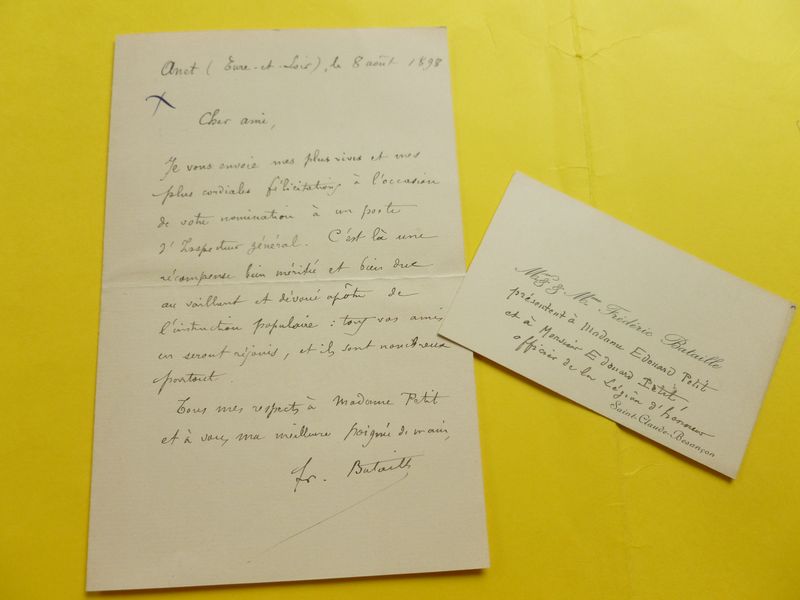 Anet (Eure-et-Loir), le 8 août 1898
Cher ami,
Je vous envoie mes plus vives et mes
plus cordiales félicitations à l'occasion
de votre nomination à un poste
d'Inspecteur général. C'est là une
récompense bien méritée et bien due
au vaillant et dévoué apôtre de
l'instruction populaire : tous vos amis
en seront réjouis, et ils sont nombreux
partout.
Tous mes respects à Madame Petit
et à vous, ma meilleure poignée de main,
fr. Bataille
Mr & Mme Frédéric Bataille
présentent à Madame Edouard Petit
et à Monsieur Edouard Petit,
officier de la Légion d'honneur
Saint-Claude-Besançon